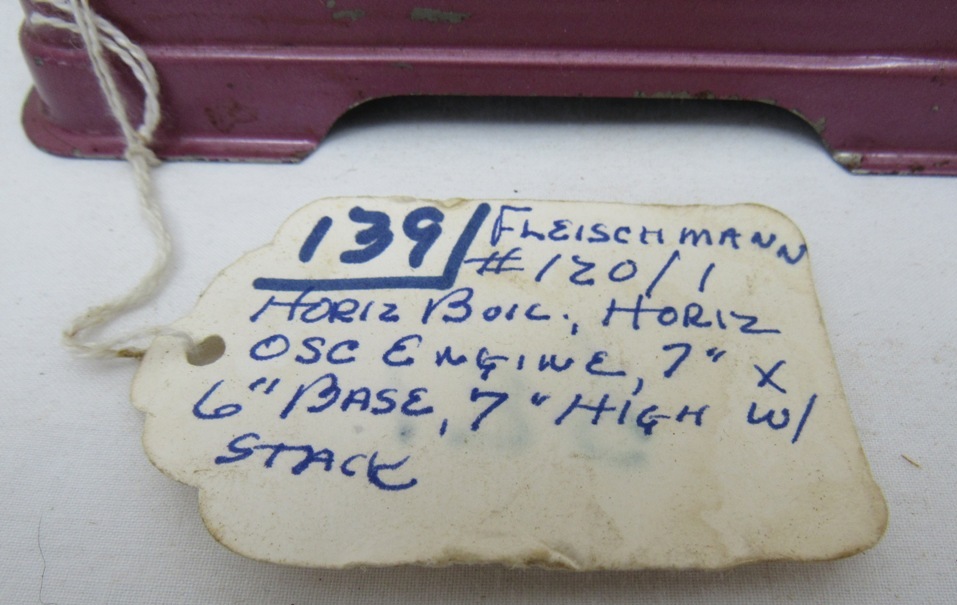 139/ FLEISCHMANN
#120/1
HORIZ BOIL., HORIZ
OSC ENGINE, 7" x
6" BASE, 7" HIGH W/
STACK